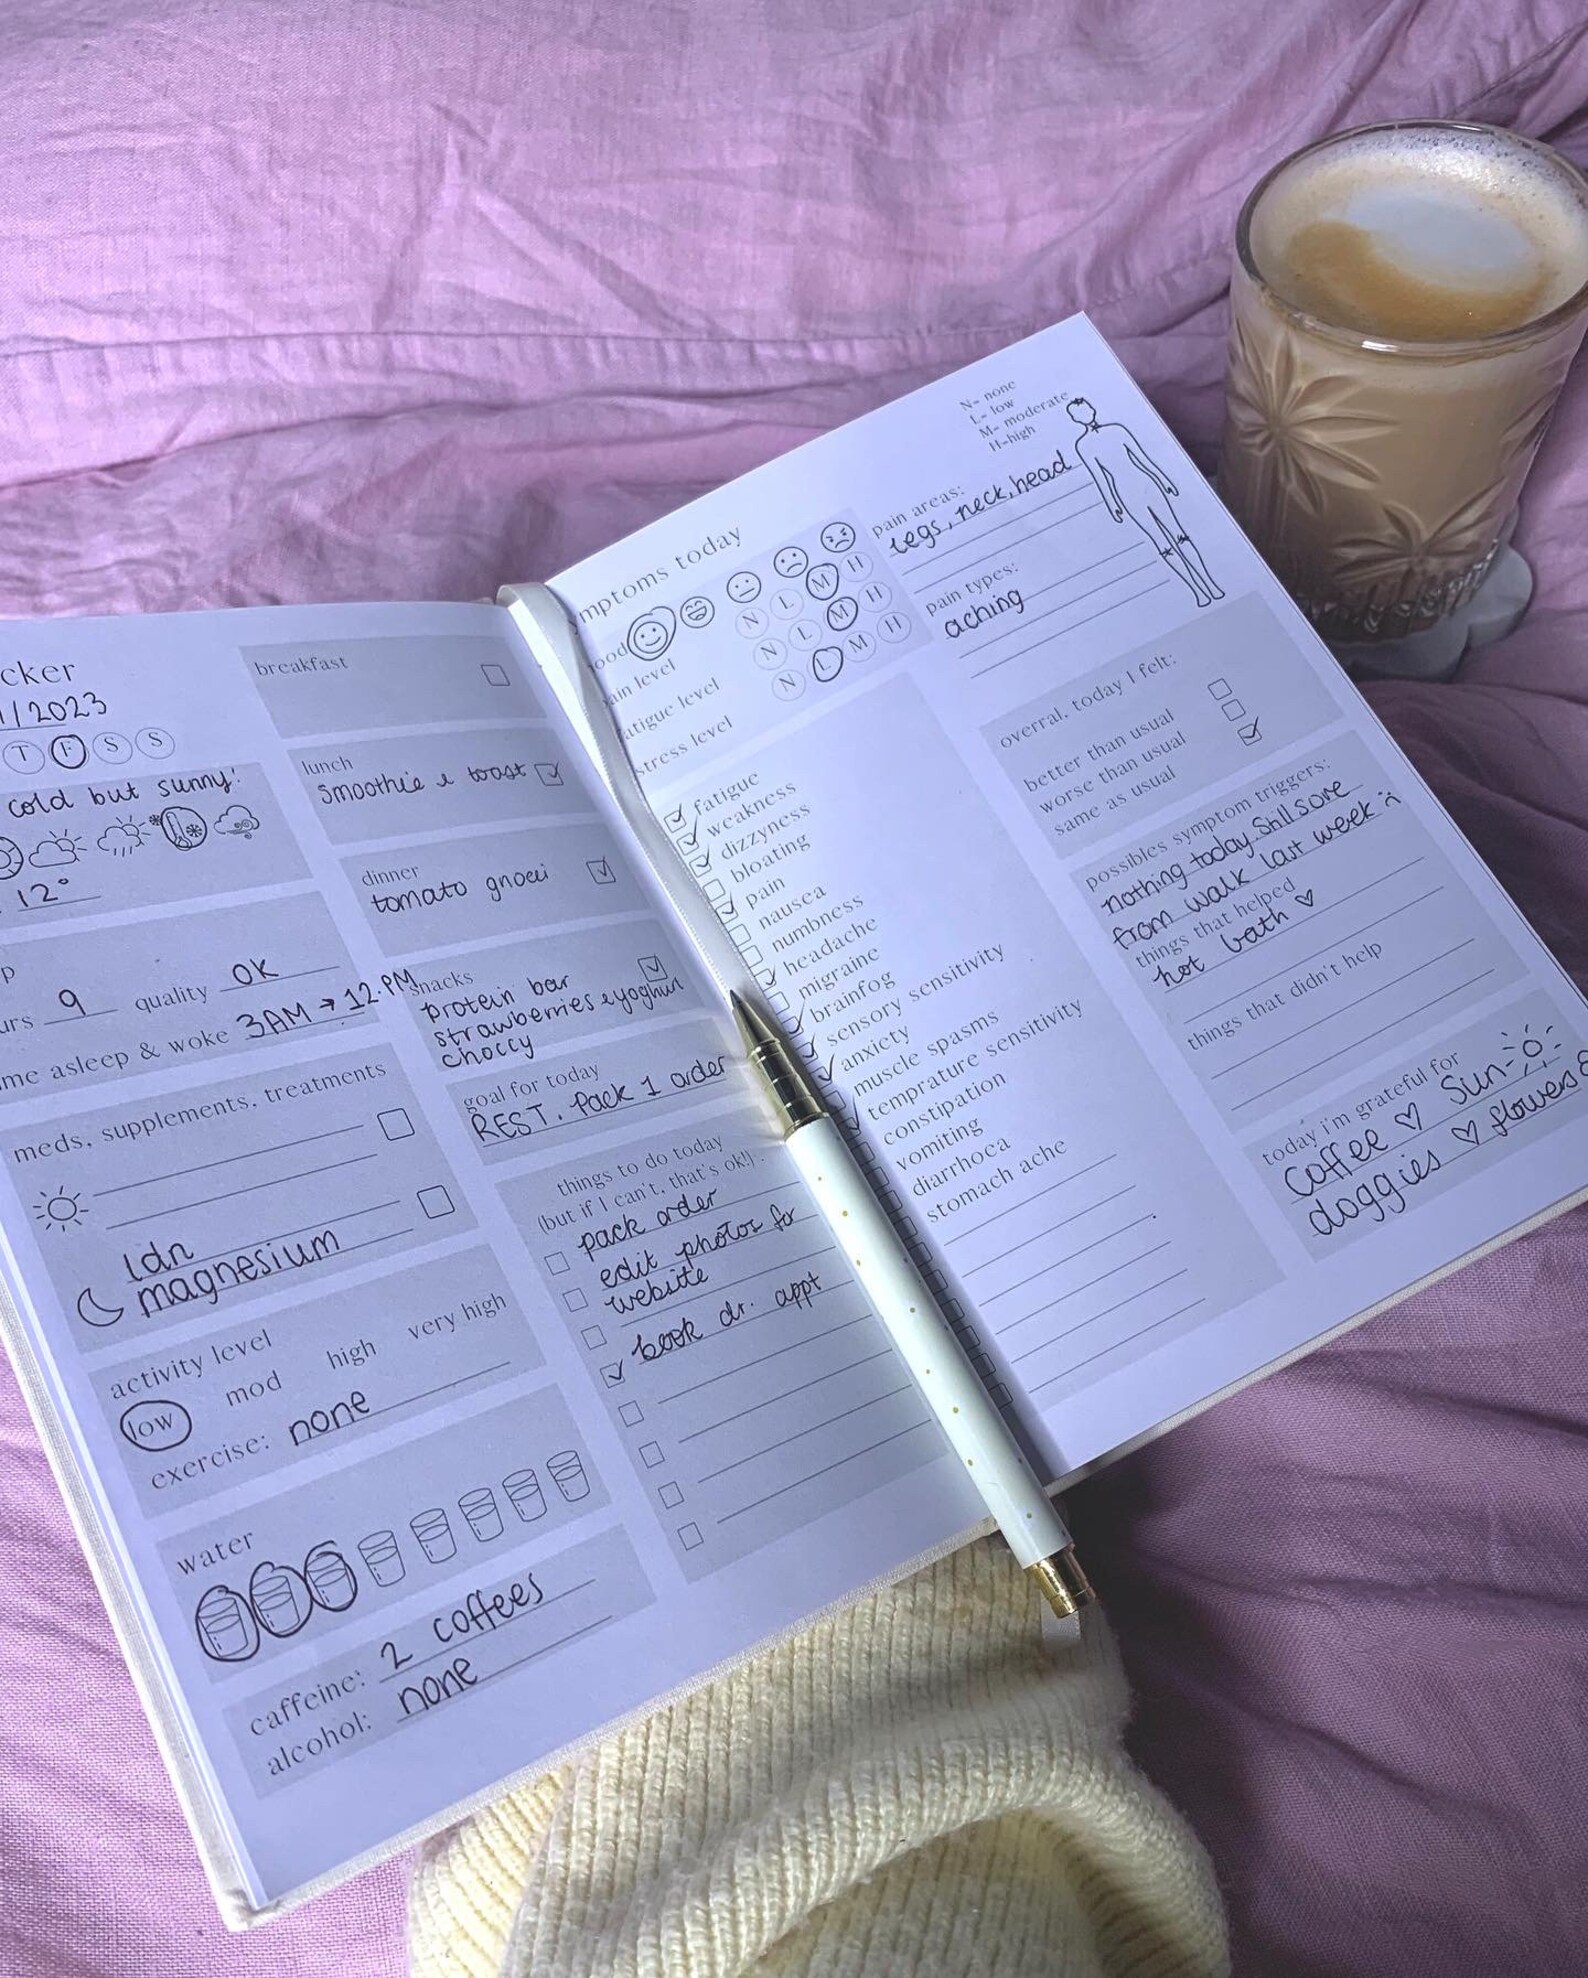 cker
1/2023
T F S S
cold but sunny!
12°
p
urs 9 quality OK
me asleep & woke 3AM → 12.PM
meds, supplements, treatments
ldn
magnesium
activity level
low mod high very high
exercise: none
water
caffeine: 2 coffees
alcohol: none
breakfast
lunch
smoothie & toast
dinner
tomato gnocci
snacks
protein bar
strawberries & yoghurt
choccy
goal for today
REST. Pack 1 order
things to do today
(but if I can't, that's ok!)
pack order
edit photos for
website
book dr. appt
mptoms today
N= none
L= low
M= moderate
H=high
ood
ain level N L M H
atigue level N L M H
stress level N L M H
pain areas:
legs, neck, head
pain types:
aching
fatigue
weakness
dizzyness
bloating
pain
nausea
numbness
headache
migraine
brainfog
sensory sensitivity
anxiety
muscle spasms
temprature sensitivity
constipation
vomiting
diarrhoea
stomach ache
overral, today I felt:
better than usual
worse than usual
same as usual
possibles symptom triggers:
nothing today. Still sore
from walk last week :(
things that helped
hot bath ♡
things that didn't help
today i'm grateful for
Coffee ♡ Sun
doggies ♡ flowers